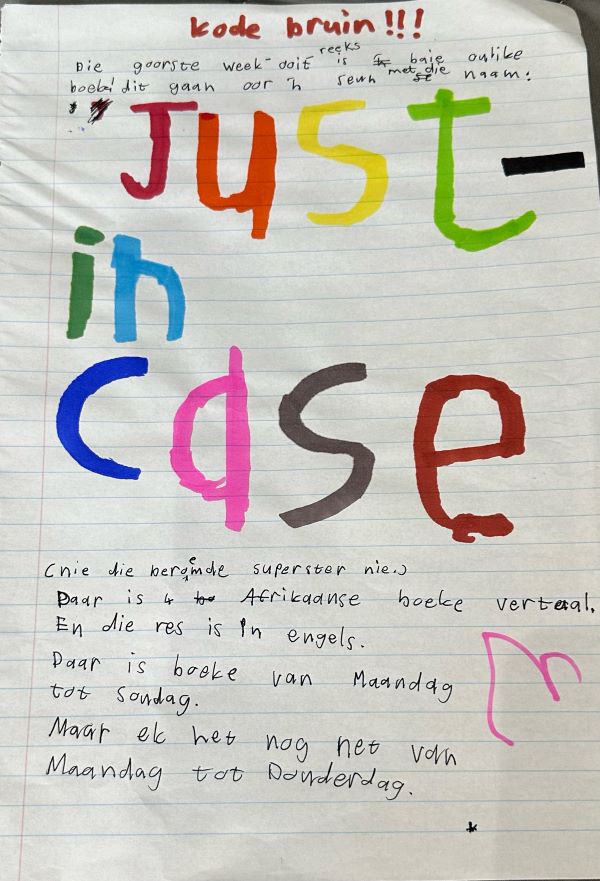 kode bruin!!!
Die goorste week-ooit reeks is baie oulike
boeke! dit gaan oor 'n seun met die naam:
Just-
in
case
(nie die beroemde superster nie.)
Daar is 4 Afrikaanse boeke vertaal.
En die res is in engels.
Daar is boeke van Maandag
tot Sondag.
Maar ek het nog net van
Maandag tot Donderdag.